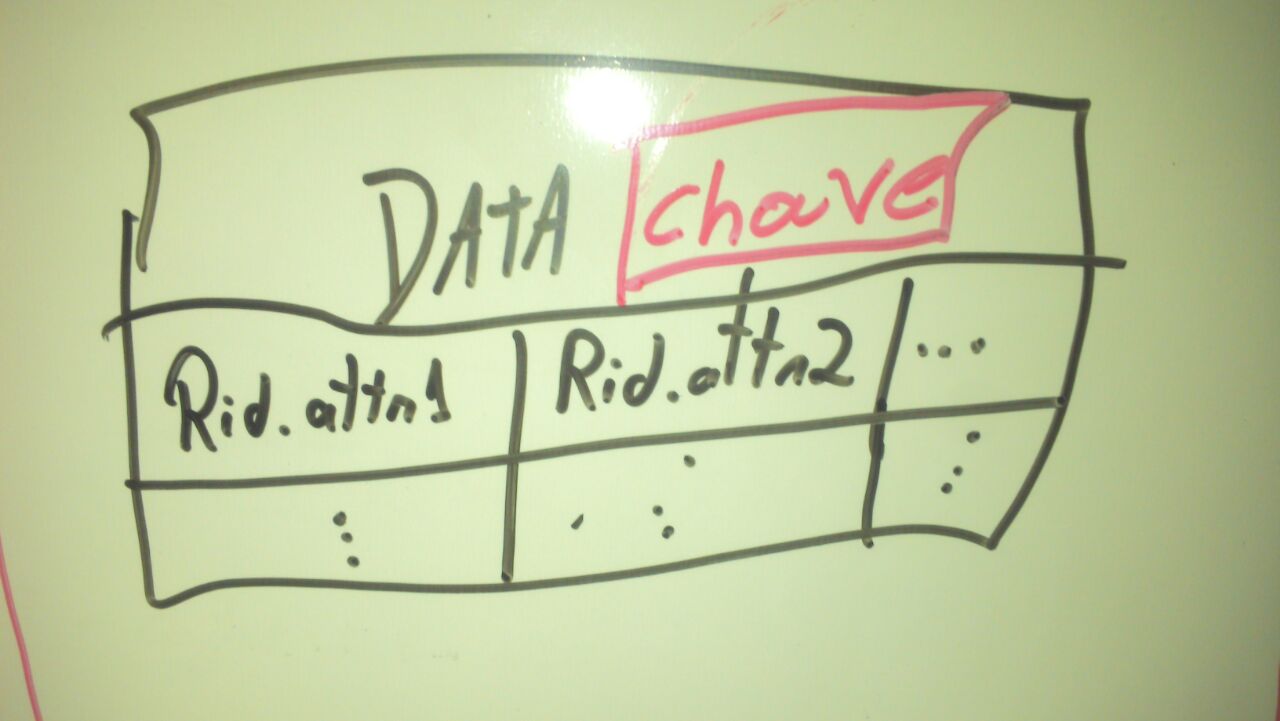 DATA chave
Rid.attr1 Rid.attr2 ...